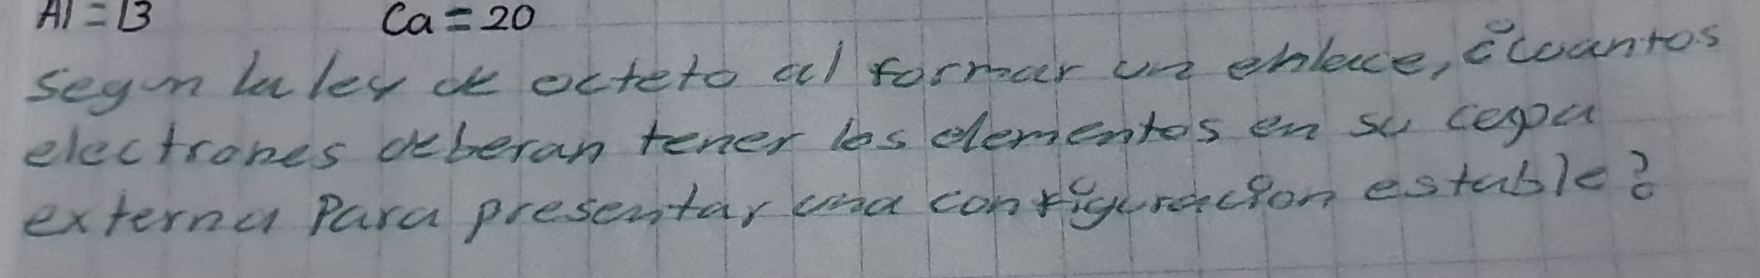 Al = 13 Ca = 20
Segun la ley de octeto al formar un enlace, ¿cuantos
electrones deberan tener los elementos en su capa
externa Para presentar una configuración estable?